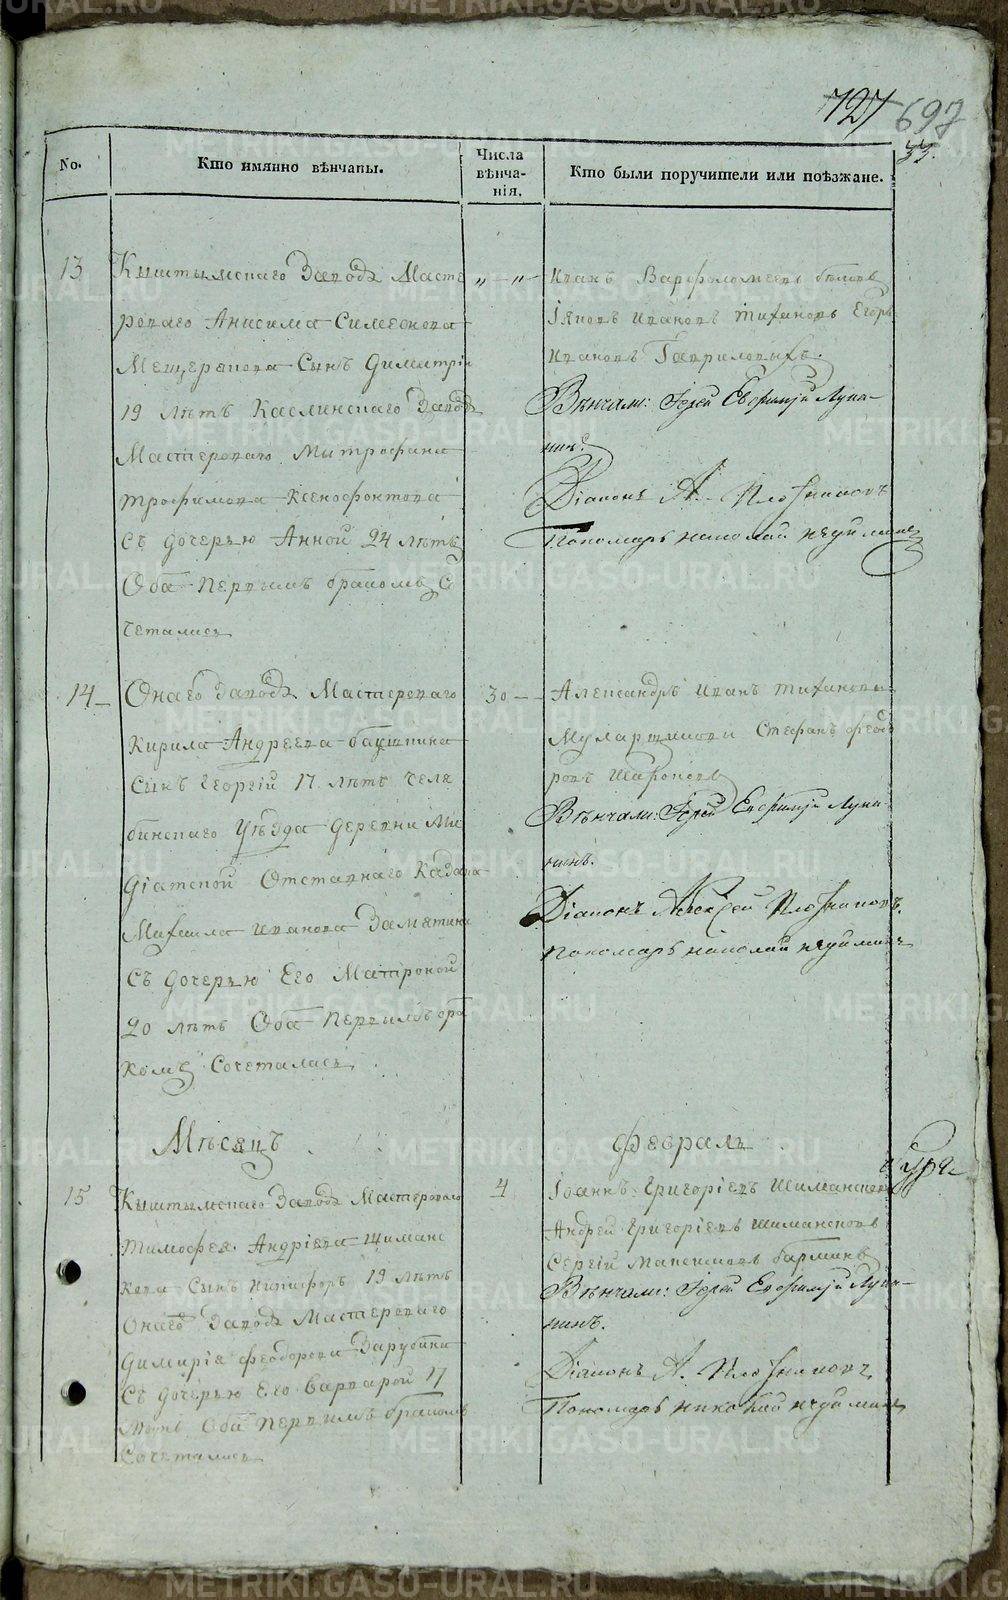 727 697
33.
No.
Кто имянно вѣнчаны.
Числа вѣнча-нія.
Кто были поручители или поѣзжане.
13
Кыштымскаго Завода Масте
роваго Анисима Симеонова
Мещерякова Сынъ Димитрій
19 лѣтъ Каслинскаго Завода
Мастероваго Митрофана
Трофимова Ксенофонтова
съ дочерью Анной 24 лѣтъ
Оба первымъ бракомъ Со
четались
„ — „ —
Иванъ Варфоломеевъ Бѣловъ
Іяковъ Ивановъ Тихановъ Егоръ
Ивановъ Гавриловыхъ.
Вѣнчали: Іерей Евфимій Лука-
нинъ.
Діаконъ А. Плотниковъ
Пономарь Николай
14
Онаго Завода Мастероваго
Кирила Андреева
Сынъ Георгій 17 лѣтъ Челя
бинскаго Уѣзда Деревни Ми
діатской Отставнаго Казака
Михаила Иванова Замятина
съ дочерью Его Матроной
20 лѣтъ Оба первымъ бра
комъ Сочетались
30 —
Александръ Иванъ Тихановы
Стефанъ Ѳеодо
ровъ Широковъ
Вѣнчали: Іерей Евфимій Лука-
нинъ.
Діаконъ Алексей Плотниковъ.
Пономарь Николай
Мѣсецъ
Февраль
15
Кыштымскаго Завода Мастероваго
Тимофея Андріева Шиманс
кова Сынъ Никифоръ 19 лѣтъ
Онаго Завода Мастероваго
Димитрія Феодорова Зарубина
съ дочерью Его Варварой 17
лѣтъ Оба первымъ бракомъ
Сочетались
4
Іоаннъ Григоріевъ Шиманской
Андрей Григоріевъ Шимансковъ
Сергій Максимовъ
Вѣнчали: Іерей Евфимій Лука-
нинъ.
Діаконъ А. Плотниковъ
Пономарь Николай
METRIKI.GASO-URAL.RU